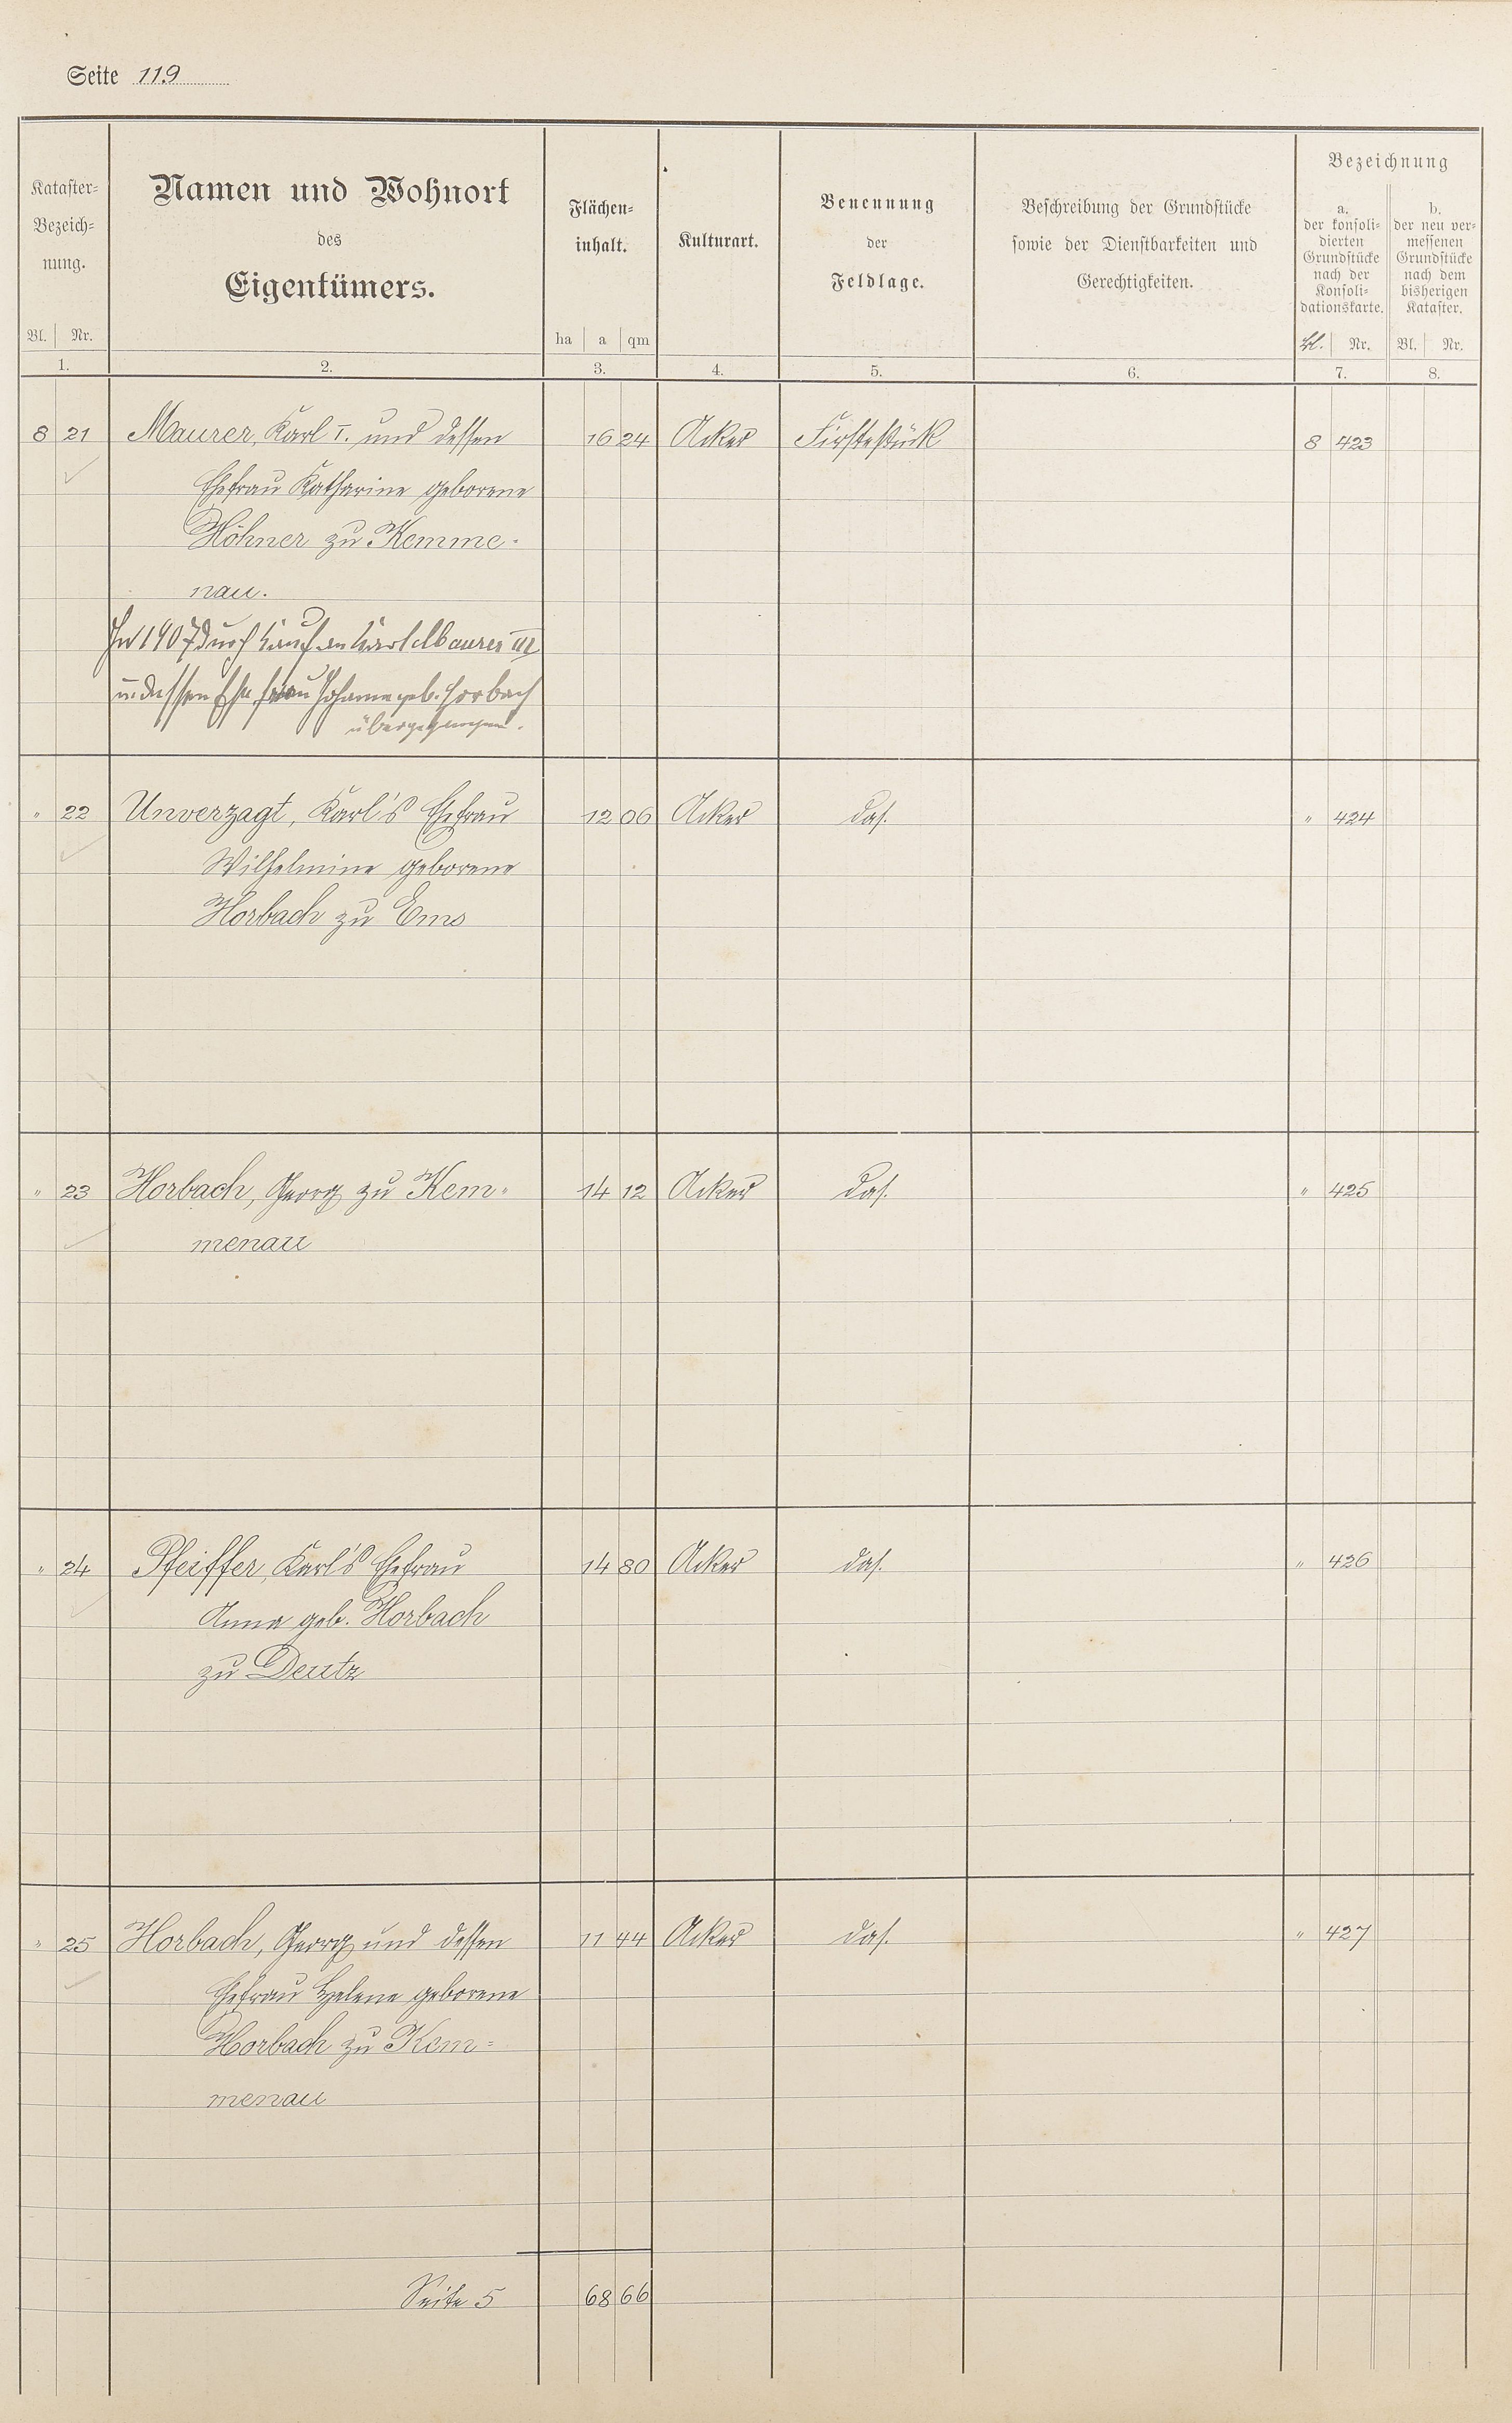 Seite 119
Kataster-
Bezeich-
nung.
Bl. Nr.
1.
Namen und Wohnort
des
Eigentümers.
2.
Flächen-
inhalt.
ha a qm
3.
Kulturart.
4.
Benennung
der
Feldlage.
5.
Beschreibung der Grundstücke
sowie der Dienstbarkeiten und
Gerechtigkeiten.
6.
Bezeichnung
a.
der konsoli-
dierten
Grundstücke
nach der
Konsoli-
dationskarte.
Bl. Nr.
7.
b.
der neu ver-
messenen
Grundstücke
nach dem
bisherigen
Kataster.
Bl. Nr.
8.
8 21 Maurer, Karl I. und dessen 16 24 Acker Firstestück 8 423
Ehefrau Katharine geborene
Höhner zu Kemme-
nau.
In 1907 durch Kauf an Karl Maurer III
u. dessen Ehefrau Johanna geb. Horbach
übergegangen.
" 22 Unverzagt, Karl's Ehefrau 12 06 Acker das. " 424
Wilhelmine geborene
Horbach zu Ems
" 23 Horbach, Georg zu Kem- 14 12 Acker das. " 425
menau
" 24 Pfeiffer, Karl's Ehefrau 14 80 Acker das. " 426
Anna geb. Horbach
zu Deutz
" 25 Horbach, Georg und dessen 11 44 Acker das. " 427
Ehefrau Helene geborene
Horbach zu Kem=
menau
Seite 5 68 66